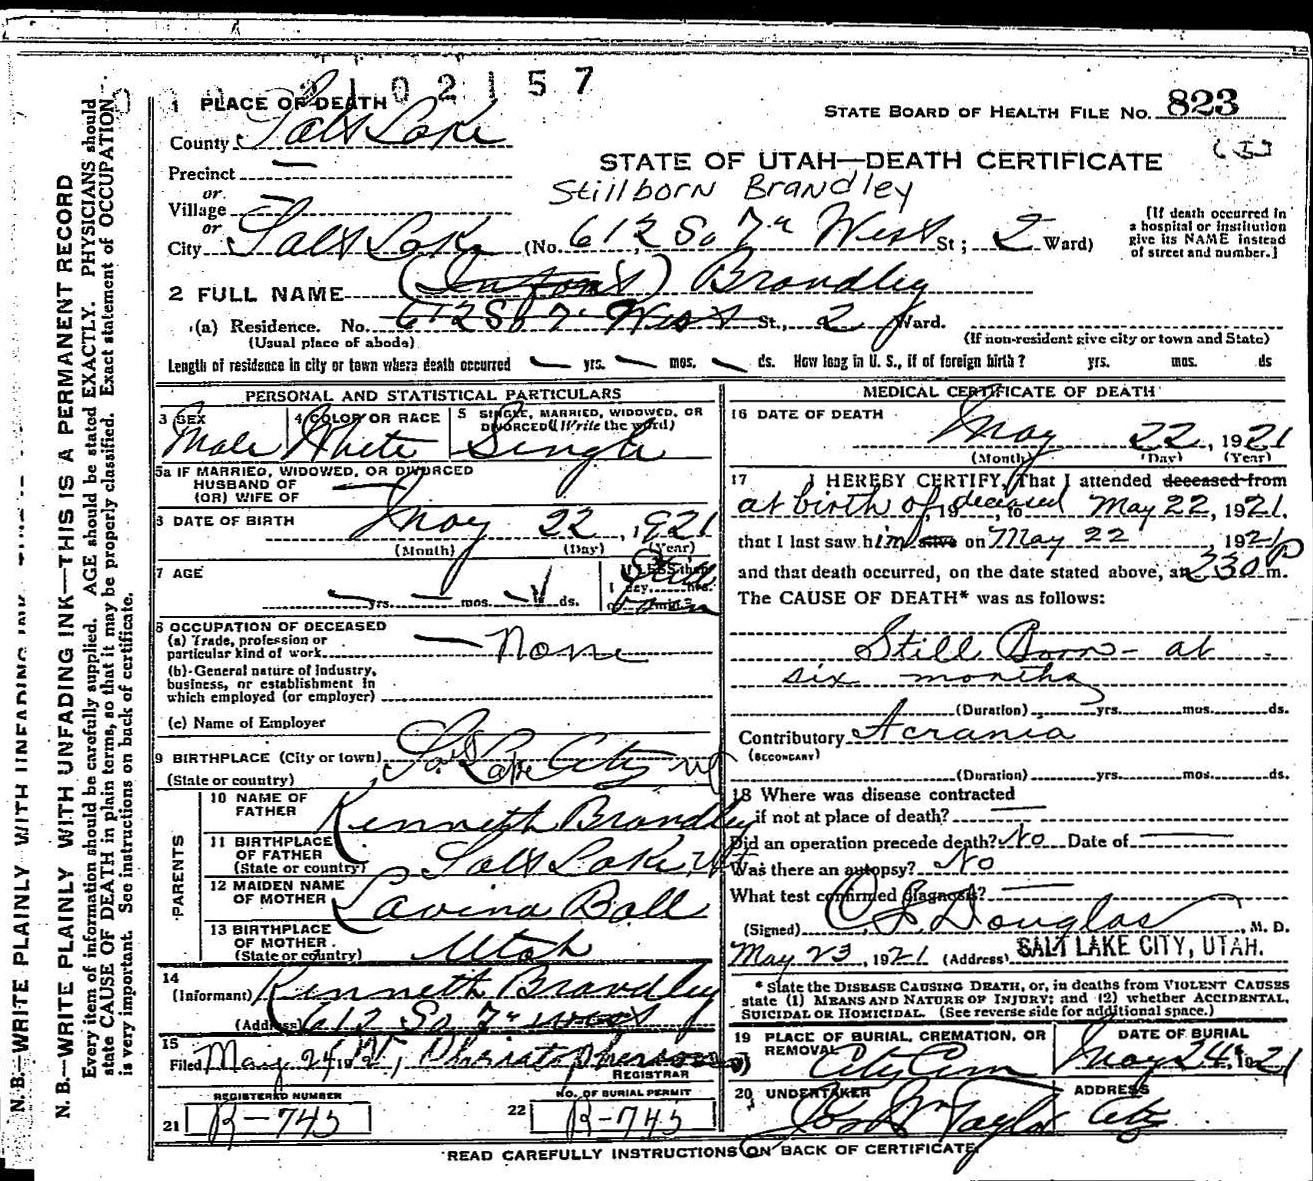 2102157
1 PLACE OF DEATH
STATE BOARD OF HEALTH FILE NO. 823
County Salt Lake
STATE OF UTAH—DEATH CERTIFICATE
Precinct —
Stillborn Brandley
or
Village —
or
City Salt Lake (No. 612 So 7th West St; 2 Ward)
[If death occurred in
a hospital or institution
give its NAME instead
of street and number.]
2 FULL NAME (Infant) Brandley
(a) Residence. No. 612 So 7th West St., 2 Ward.
(Usual place of abode)
(If non-resident give city or town and State)
Length of residence in city or town where death occurred — yrs. — mos. — ds. How long in U. S., if of foreign birth? yrs. mos. ds
PERSONAL AND STATISTICAL PARTICULARS
3 SEX
Male
4 COLOR OR RACE
White
5 SINGLE, MARRIED, WIDOWED, OR
DIVORCED (Write the word)
Single
5a IF MARRIED, WIDOWED, OR DIVORCED
HUSBAND OF
(OR) WIFE OF —
6 DATE OF BIRTH May 22, 1921
(Month) (Day) (Year)
7 AGE
If LESS than
1 day, hrs.
or min.?
Still
born
yrs. mos. ds.
8 OCCUPATION OF DECEASED
(a) Trade, profession or
particular kind of work — None
(b) General nature of industry,
business, or establishment in
which employed (or employer)
(c) Name of Employer
9 BIRTHPLACE (City or town) Salt Lake City Ut
(State or country)
PARENTS
10 NAME OF
FATHER Kenneth Brandley
11 BIRTHPLACE
OF FATHER
(State or country) Salt Lake, Ut
12 MAIDEN NAME
OF MOTHER Lavina Ball
13 BIRTHPLACE
OF MOTHER
(State or country) Utah
14
(Informant) Kenneth Brandley
(Address) 612 So 7th West
15
Filed May 24, 1921,
REGISTRAR
REGISTERED NUMBER
21 R-745
NO. OF BURIAL PERMIT
22 R-745
MEDICAL CERTIFICATE OF DEATH
16 DATE OF DEATH
May 22, 1921
(Month) (Day) (Year)
17 I HEREBY CERTIFY, That I attended deceased from
at birth of deceased, 19, to May 22, 1921,
that I last saw him alive on May 22, 1921
and that death occurred, on the date stated above, at 230 P m.
The CAUSE OF DEATH* was as follows:
Still Born - at
six months
(Duration) yrs. mos. ds.
Contributory Acrania
(SECONDARY)
(Duration) yrs. mos. ds.
18 Where was disease contracted
if not at place of death? —
Did an operation precede death? No Date of —
Was there an autopsy? No
What test confirmed diagnosis? —
(Signed) Douglas, M. D.
May 23, 1921 (Address) SALT LAKE CITY, UTAH.
* State the DISEASE CAUSING DEATH, or, in deaths from VIOLENT CAUSES
state (1) MEANS AND NATURE OF INJURY; and (2) whether ACCIDENTAL,
SUICIDAL OR HOMICIDAL. (See reverse side for additional space.)
19 PLACE OF BURIAL, CREMATION, OR
REMOVAL City Cem
DATE OF BURIAL
May 24, 1921
20 UNDERTAKER
Jos Wm Taylor
ADDRESS
City
READ CAREFULLY INSTRUCTIONS ON BACK OF CERTIFICATE
N. B.—WRITE PLAINLY WITH UNFADING INK—THIS IS A PERMANENT RECORD
Every item of information should be carefully supplied. AGE should be stated EXACTLY. PHYSICIANS should
state CAUSE OF DEATH in plain terms, so that it may be properly classified. Exact statement of OCCUPATION
is very important. See instructions on back of certificate.
N. B.—WRITE PLAINLY WITH UNFADING INK